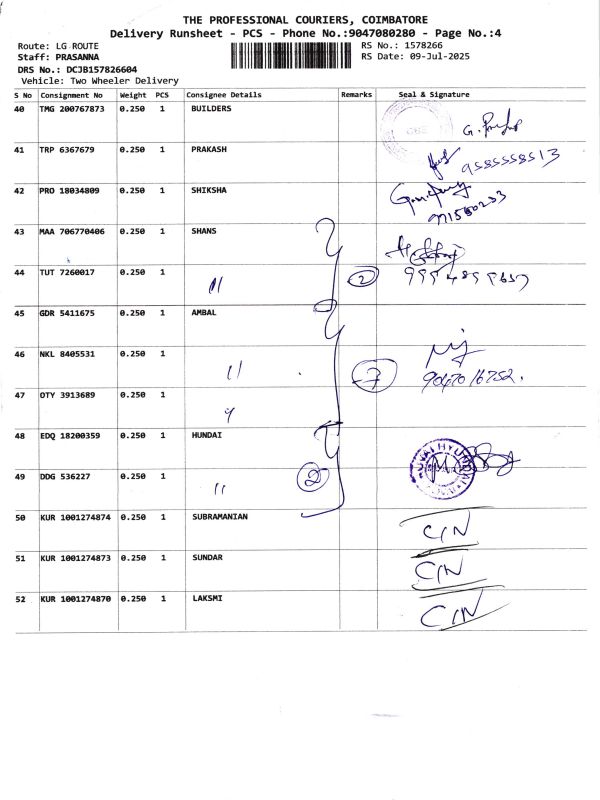 THE PROFESSIONAL COURIERS, COIMBATORE
Delivery Runsheet - PCS - Phone No.:9047080280 - Page No.:4
Route: LG ROUTE
Staff: PRASANNA
DRS No.: DCJB157826604
Vehicle: Two Wheeler Delivery
RS No.: 1578266
RS Date: 09-Jul-2025
S No Consignment No Weight PCS Consignee Details Remarks Seal & Signature
40 TMG 200767873 0.250 1 BUILDERS
41 TRP 6367679 0.250 1 PRAKASH
9585558513
42 PRO 18034809 0.250 1 SHIKSHA
43 MAA 706770406 0.250 1 SHANS
44 TUT 7260017 0.250 1 11 2
45 GDR 5411675 0.250 1 AMBAL
46 NKL 8405531 0.250 1 11 7
9047016752.
47 OTY 3913689 0.250 1 4
48 EDQ 18200359 0.250 1 HUNDAI
49 DDG 536227 0.250 1 11 2
50 KUR 1001274874 0.250 1 SUBRAMANIAN C/N
51 KUR 1001274873 0.250 1 SUNDAR C/N
52 KUR 1001274870 0.250 1 LAKSMI C/N